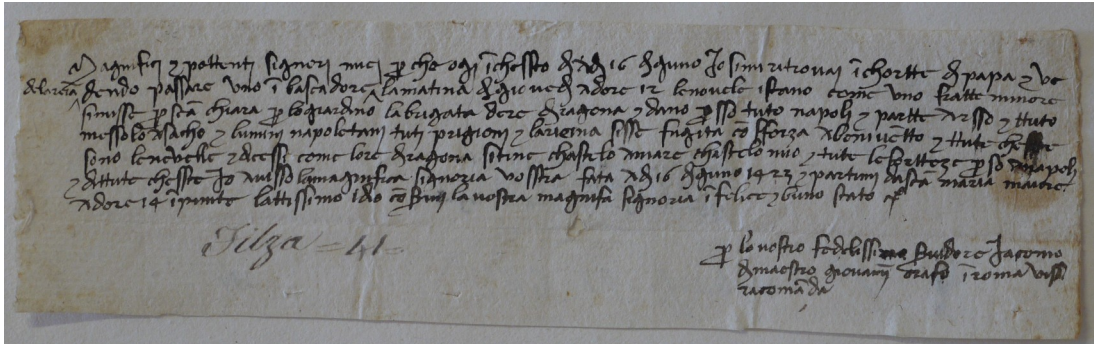 Magnifici y pottenti signori mei p che ogi ī chessto dì adì 16 di guno Jo simi ritrovai ī chortte di papa y ve
dendo passare uno ībasca dore la matina di giovedì adore 12 le novele istano come uno fratte minore
simisse p scā chiara p lo giardino la brigata de re di ragona y dano p sso tuto napoli y partte arsso y ttuto
messolo asacho y lumini napoletani tuti prigioni y la rieina sesse fugita cō sforza a benivetto y ttute chesste
sono le novelle y dicessi come lo re di ragona si tine chastelo a mare chastelo nuo y tute le fortteze p so a napoli
y di ttute chesste Jo avisso la magnifica signoria vosstra fata adì 16 di guno 1423 y partuni da scā maria maiore
adore 14 ī punte lattissimo idio cō servi la vostra magnifica signoria ī felice y buno stato
Filza = 41 =
p lo vostro fedelissimo servidore Jacomo
di maestro giovanni orafo ī roma visi
racomāda